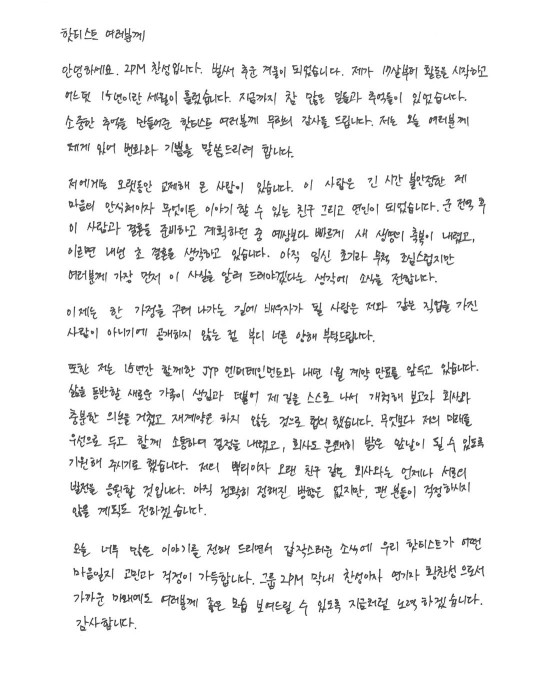 핫티스트 여러분께
안녕하세요. 2PM 찬성입니다. 벌써 추운 겨울이 되었습니다. 제가 17살부터 활동을 시작하고
어느덧 15년이란 세월이 흘렀습니다. 지금까지 참 많은 일들과 추억들이 있었습니다.
소중한 추억을 만들어준 핫티스트 여러분께 무한의 감사를 드립니다. 저는 오늘 여러분께
제게 있어 변화와 기쁨을 말씀드리려 합니다.
저에게는 오랫동안 교제해 온 사람이 있습니다. 이 사람은 긴 시간 불안정한 제
마음의 안식처이자 무엇이든 이야기 할 수 있는 친구 그리고 연인이 되었습니다. 군 전역 후
이 사람과 결혼을 준비하고 계획하던 중 예상보다 빠르게 새 생명의 축복이 내렸고,
이르면 내년 초 결혼을 생각하고 있습니다. 아직 임신 초기라 무척 조심스럽지만
여러분께 가장 먼저 이 사실을 알려 드려야겠다는 생각에 소식을 전합니다.
이제는 한 가정을 꾸려 나가는 길에 배우자가 될 사람은 저와 같은 직업을 가진
사람이 아니기에 공개하지 않는 점 부디 너른 양해 부탁드립니다.
또한 저는 15년간 함께한 JYP 엔터테인먼트와 내년 1월 계약 만료를 앞두고 있습니다.
삶을 동반할 새로운 가족이 생김과 더불어 제 길을 스스로 나서 개척해 보고자 회사와
충분한 의논을 거쳤고 재계약은 하지 않는 것으로 협의했습니다. 무엇보다 저의 미래를
우선으로 두고 함께 소통하며 결정을 내렸고, 회사도 은탠히 밝은 앞날이 될 수 있도록
기원해 주시기로 했습니다. 저의 뿌리이자 오랜 친구 같은 회사와는 언제나 서로의
발전을 응원할 것입니다. 아직 정확히 정해진 방향은 없지만, 팬 분들이 걱정하시지
않을 계획도 전하겠습니다.
오늘 너무 많은 이야기를 전해 드리면서 갑작스러운 소식에 우리 핫티스트가 어떤
마음일지 고민과 걱정이 가득합니다. 그룹 2PM 막내 찬성이자 연기자 황찬성으로서
가까운 미래에도 여러분께 좋은 모습 보여드릴 수 있도록 지금처럼 노력하겠습니다.
감사합니다.